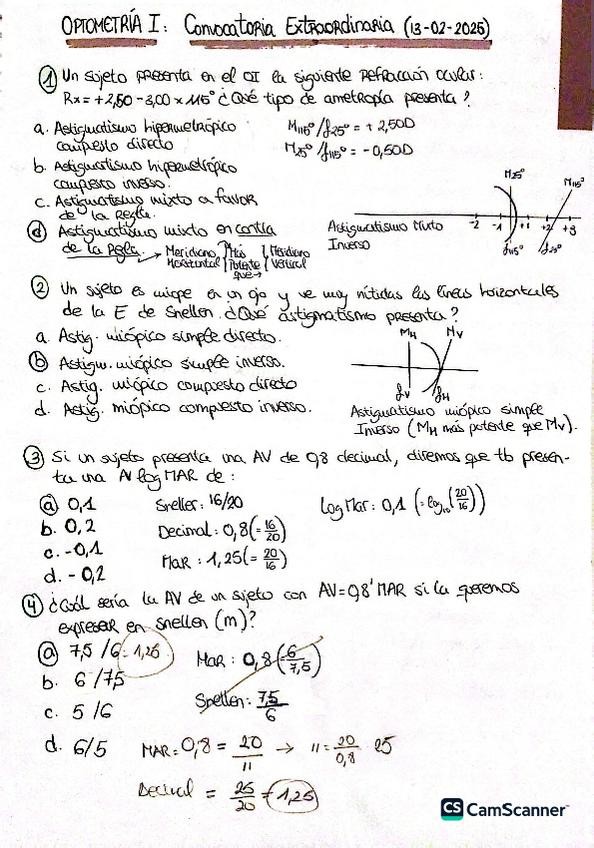 OPTOMETRÍA I: Convocatoria Extraordinaria (13-02-2025)
① Un sujeto presenta en el OI la siguiente refracción ocular:
Rx = +2,50 -3,00 x 115° ¿Qué tipo de ametropía presenta?
a. Astigmatismo hipermetrópico
compuesto directo
b. Astigmatismo hipermetrópico
compuesto inverso.
c. Astigmatismo mixto a favor
de la Regla.
ⓓ Astigmatismo mixto en contra
de la Regla.
→ Meridiano Horizontal } Más Potente que → { Meridiano Vertical
M115° / f25° = +2,50D
M25° / f115° = -0,50D
M25°
M115°
-2 -1 +1 +2 +3
f115° f25°
Astigmatismo Mixto
Inverso
② Un sujeto es miope en un ojo y ve muy nítidas las líneas horizontales
de la E de Snellen. ¿Qué astigmatismo presenta?
a. Astig. miópico simple directo.
ⓑ Astigm. miópico simple inverso.
c. Astig. miópico compuesto directo
d. Astig. miópico compuesto inverso.
MH MV
fV fH
Astigmatismo miópico simple
Inverso (MH más potente que MV).
③ Si un sujeto presenta una AV de 0,8 decimal, diremos que tb presen-
ta una AV logMAR de:
ⓐ 0,1
b. 0,2
c. -0,1
d. -0,2
Snellen: 16/20
Decimal: 0,8 (= 16/20)
MAR: 1,25 (= 20/16)
Log Mar: 0,1 (= log10 (20/16))
④ ¿Cuál sería la AV de un sujeto con AV=0,8' MAR si la queremos
expresar en snellen (m)?
ⓐ 7,5/6 = 1,25
b. 6/7,5
c. 5/6
d. 6/5
MAR: 0,8 (= 6/7,5)
Snellen: 7,5/6
MAR = 0,8 = 20/11 → 11 = 20/0,8 25
Decimal = 25/20 = 1,25
CS CamScanner